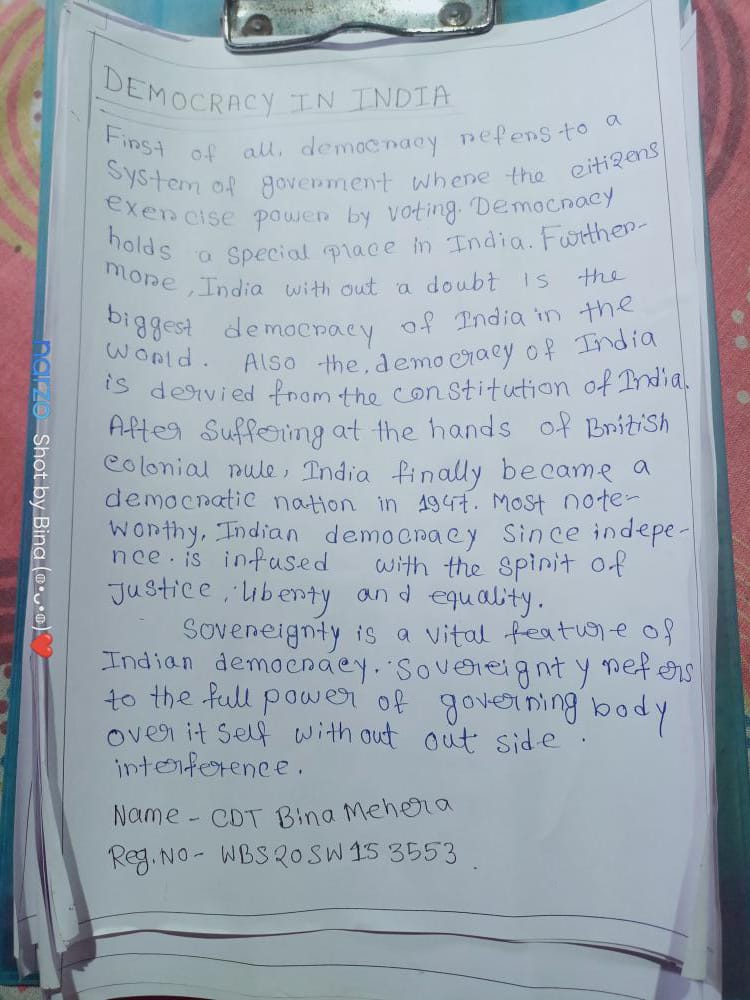 DEMOCRACY IN INDIA
First of all, democracy refers to a
system of goverment where the citizens
exercise power by voting. Democracy
holds a special place in India. Further-
more, India with out a doubt is the
biggest democracy of India in the
world. Also the, democracy of India
is dervied from the constitution of India.
After suffering at the hands of British
colonial rule, India finally became a
democratic nation in 1947. Most note-
worthy, Indian democracy since indepe-
nce. is infused with the spirit of
justice, liberty and equality.
Sovereignty is a vital feature of
Indian democracy. Sovereignty refers
to the full power of governing body
over it self without out side.
interference.
Name - CDT Bina Mehera
Reg. No - WBS20SW153553.
narzo Shot by Bina (◍•ᴗ•◍)❤